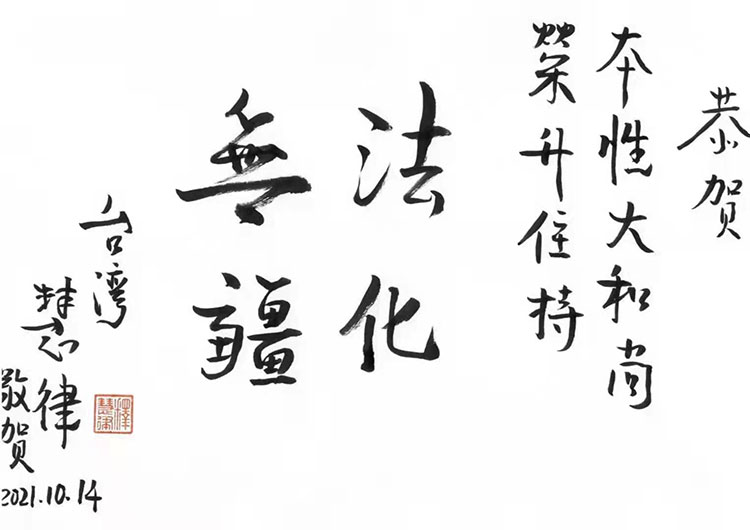 恭贺
本性大和尚
榮升住持
法化
無疆
台湾
慧律
敬贺
2021.10.14